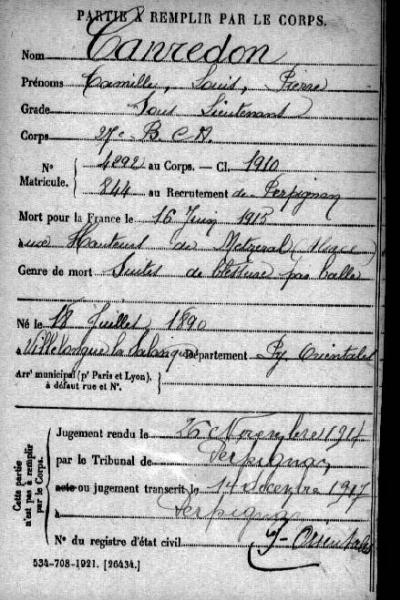 PARTIE À REMPLIR PAR LE CORPS.
Nom Canredon
Prénoms Camille, Louis, Pierre
Grade Sous Lieutenant
Corps 27e B. C. A.
N° Matricule. 4292 au Corps. — Cl. 1910
844 au Recrutement de Perpignan
Mort pour la France le 16 Juin 1915
aux Hauteurs de Metzeral (Alsace)
Genre de mort Suites de blessure par balle
Né le 18 Juillet 1890
Villelongue la Salanque Département Py. Orientales
Arrt municipal (pr Paris et Lyon), à défaut rue et N°.
Cette partie n'est pas à remplir par le Corps.
Jugement rendu le 26 Novembre 1917
par le Tribunal de Perpignan
acte ou jugement transcrit le 14 décembre 1917
à Perpignan
N° du registre d'état civil Py-Orientales
534-708-1921. [26434.]